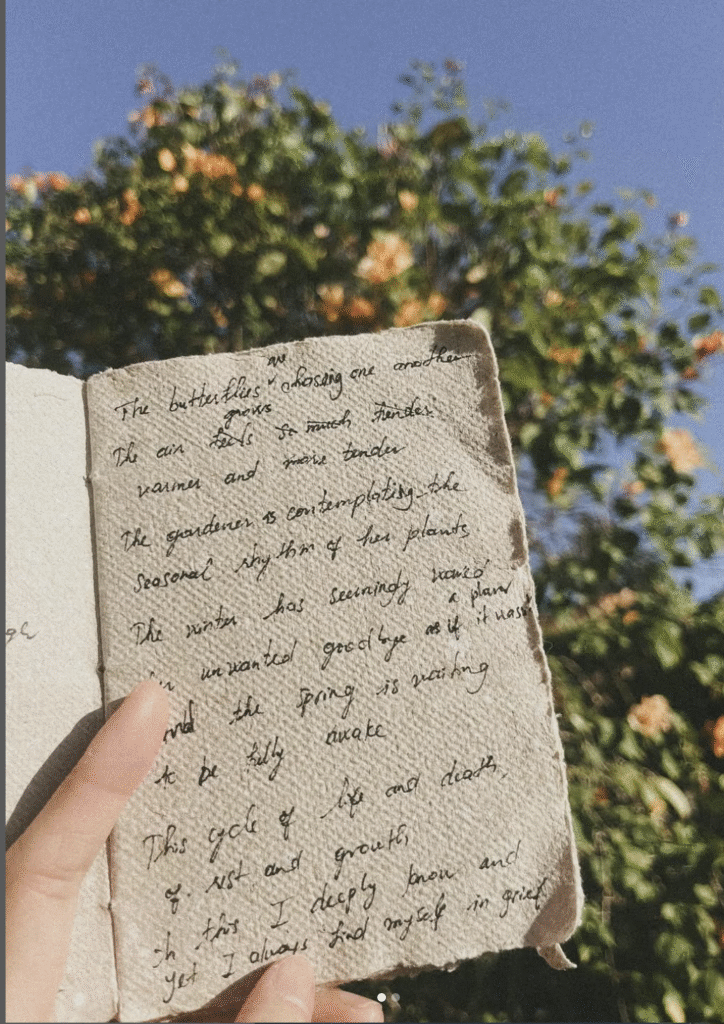 gh
The butterflies are chasing one another
The air feels grows so much tender
warmer and more tender
The gardener is contemplating the
seasonal rhythm of her plants
The winter has seemingly waved
an unwanted goodbye as if it wasn't a plan
and the spring is waiting
to be fully awake
This cycle of life and death,
of rest and growth,
this I deeply know and
yet I always find myself in grief